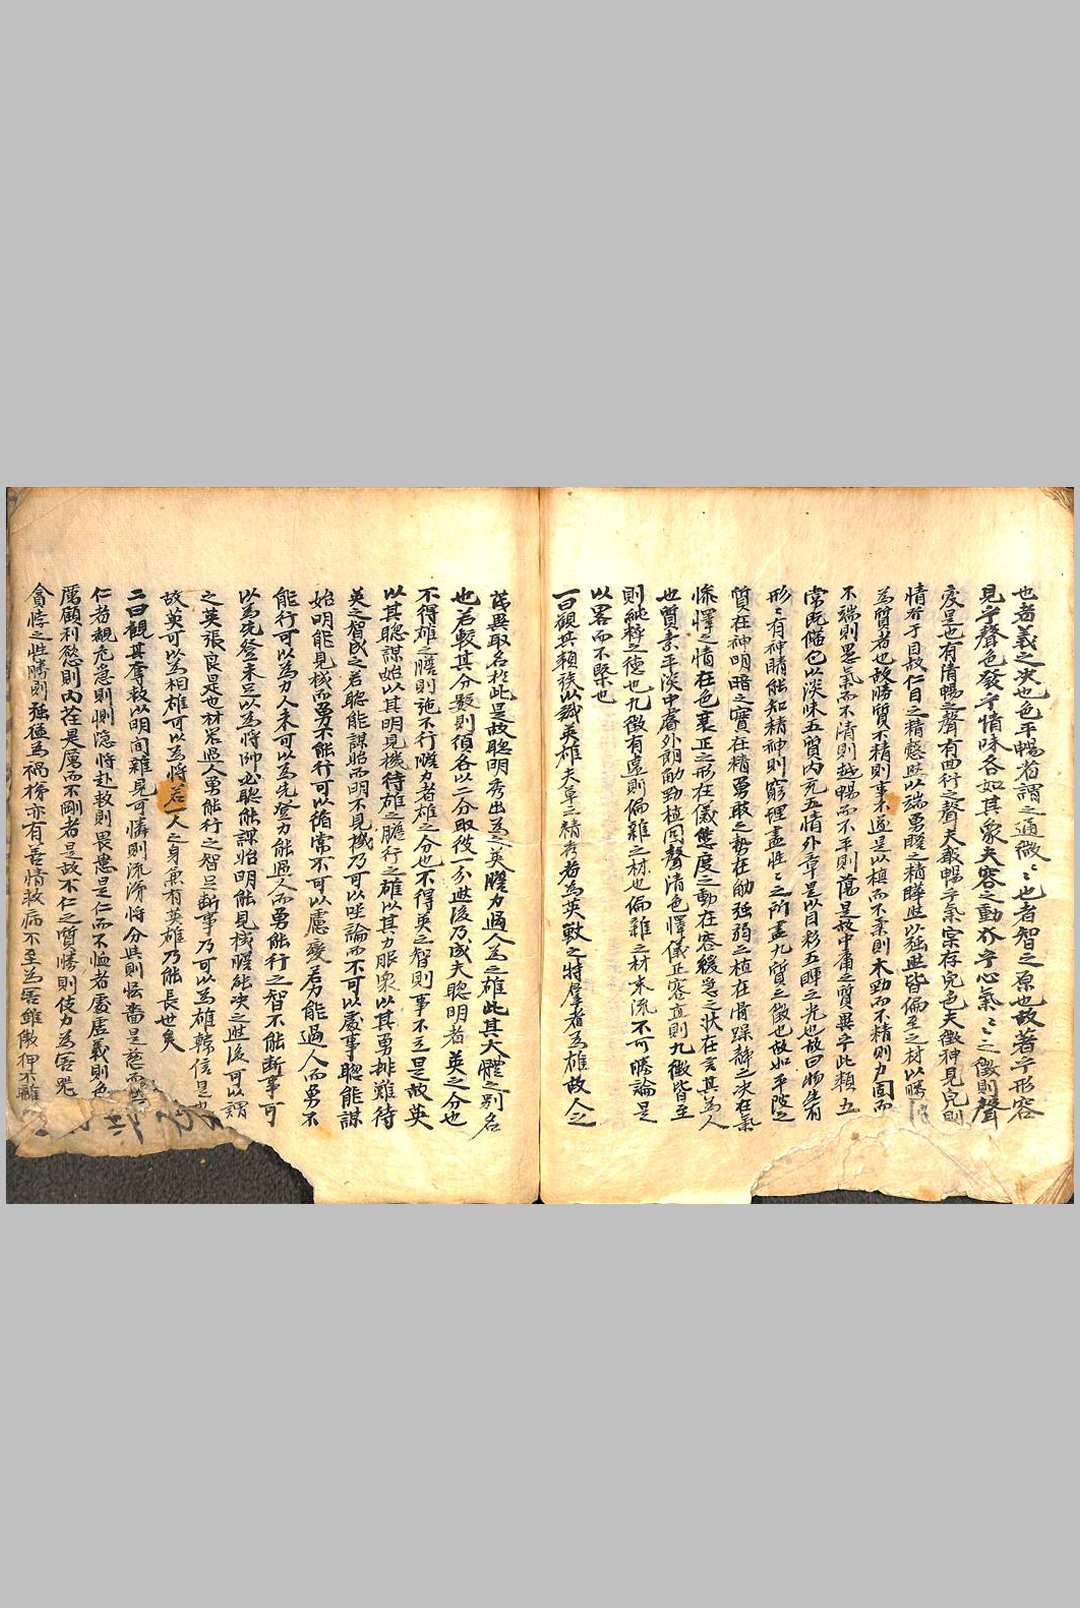 也者義之決也色平暢者謂之通微〻〻也者智之原也故著乎形容
見乎聲色發乎情味各如其象夫容之動作乎心氣〻〻之徵則聲
變是也有清暢之聲有回衍之聲夫聲暢乎氣實存皃色夫徵神見皃則
情發于目故仁目之精慤然以端勇膽之精曄然以強然皆偏至之材以勝
為質者也故勝質不精則事不遂是以植而不柔則木勁而不精則力固而
不端則愚氣而不清則越暢而不平則蕩是故中庸之質異乎此類五
常既備包以淡味五質內充五情外章是以目彩五暉之光也故曰物生有
形〻有神睛能知精神則窮理盡性〻之所盡九質之徵也故如平陂之
質在神明暗之實在精勇敢之勢在筋強弱之植在骨躁靜之決在氣
慘懌之情在色衰正之形在儀態度之動在容緩急之狀在言其為人
也質素平淡中睿外朗筋勁植固聲清色懌儀正容直則九徵皆至
則純粹之德也九徵有違則偏雜之材也偏雜之材末流不可勝論是
以畧而不槩也
一曰觀其類族以識英雄夫草之精秀者為英獸之特羣者為雄故人之
茂異取名於此是故聰明秀出為之英膽力過人為之雄此其大體之別名
也若較其分數則須各以二分取彼一分然後乃成夫聰明者英之分也
不得雄之膽則說不行膽力者雄之分也不得英之智則事不立是故英
以其聰謀始以其明見機待雄之膽行之雄以其力服衆以其勇排難待
英之智成之若聰能謀始而明不見機乃可以坐論而不可以處事聰能謀
始明能見機而勇不能行可以循常不可以慮變若力能過人而勇不
能行可以為力人未可以為先登力能過人而勇能行之智不能斷事可
以為先登未足以為將帥必聰能謀始明能見機膽能決之然後可以謂
之英張良是也材若過人勇能行之智足斷事乃可以為雄韓信是也
故英可以為相雄可以為將若一人之身兼有英雄乃能長世矣
二曰觀其奪救以明間雜見可憐則流涕將分與則恡嗇是慈而不
仁者覩危急則惻隱將赴救則畏患是仁而不恤者處虛義則色
厲顧利慾則內荏是厲而不剛者是故不仁之質勝則伎力為害器
貪悖之性勝則強猛為禍梯亦有善情救病不至為害雖傲狎不離